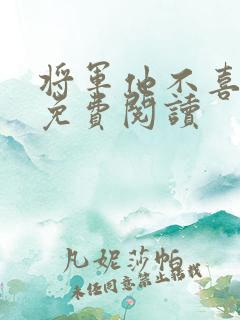 將軍他不喜
免費閱讀
凡妮莎帕
未經同意禁止轉載